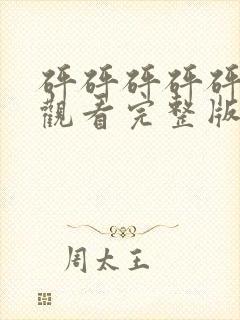 砰砰砰砰砰
觀看完整版
周太王